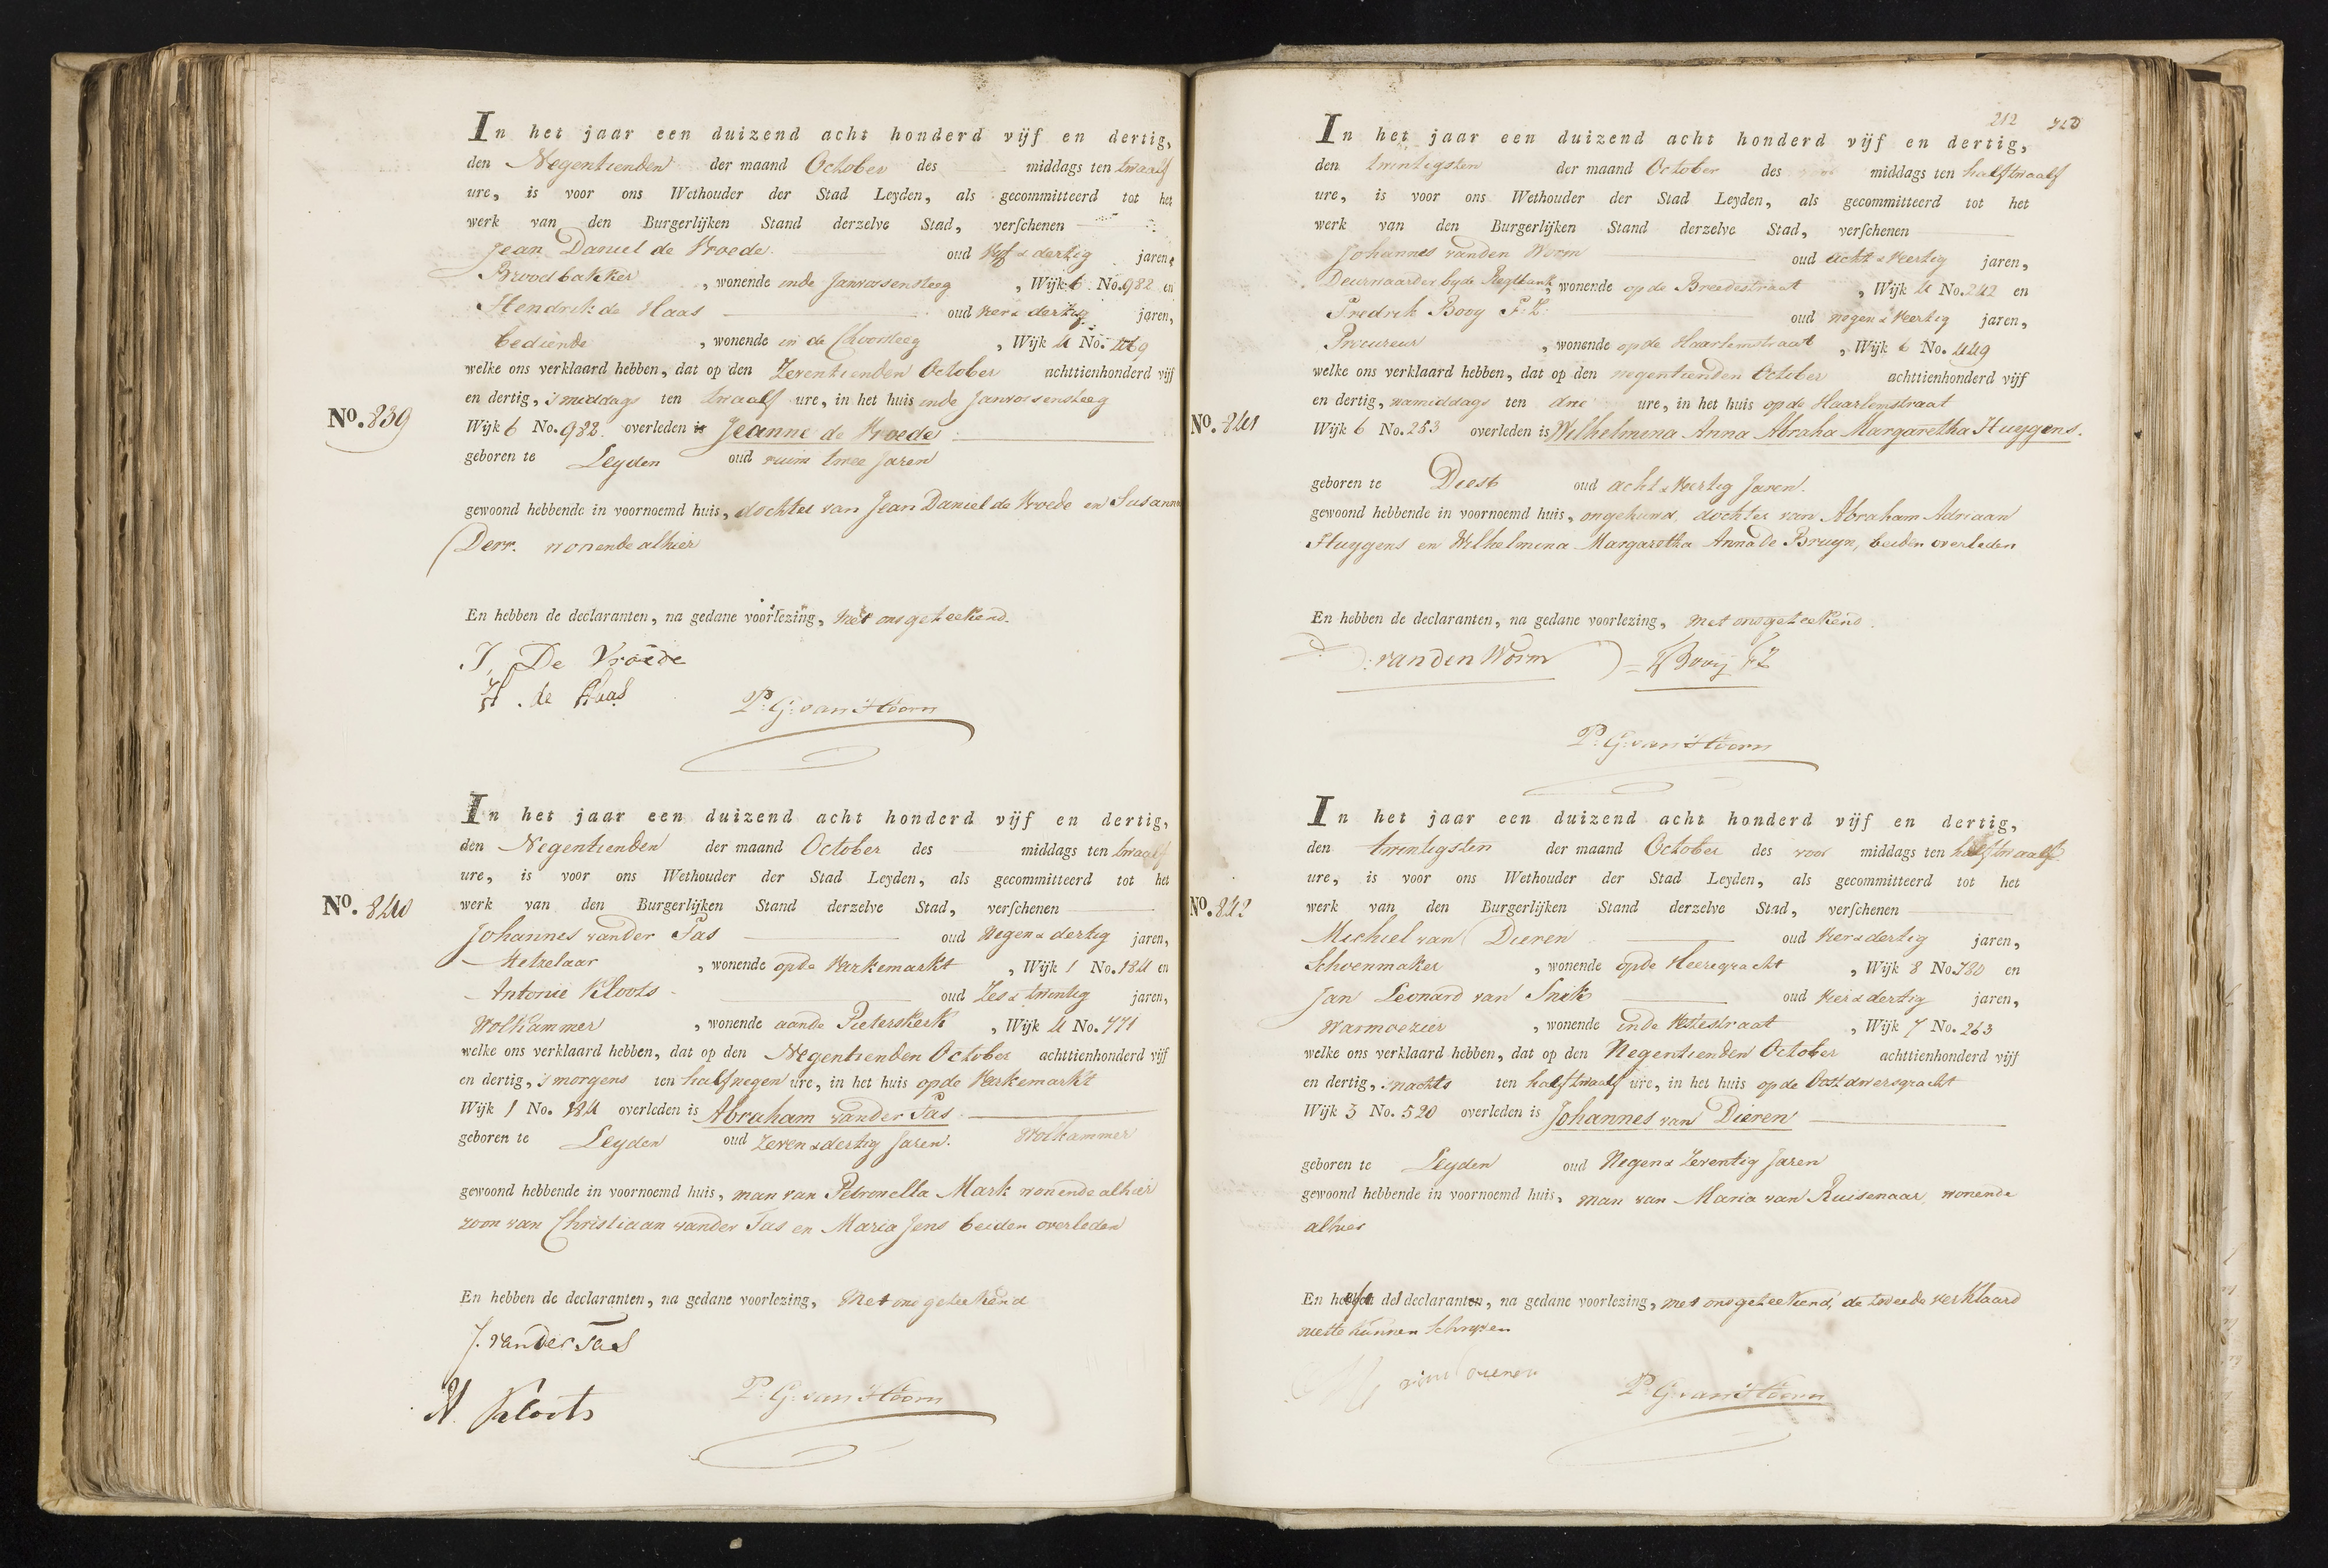 In het jaar een duizend acht honderd vijf en dertig,
den Negentienden der maand October des middags ten twaalf
ure, is voor ons Wethouder der Stad Leyden, als gecommitteerd tot het
werk van den Burgerlijken Stand derzelve Stad, verschenen
Jean Daniel de Vroede oud Vyf & dertig jaren,
Broodbakker, wonende inde Janvossensteeg, Wijk 6 No. 982 en
Hendrik de Haas oud Vier & dertig jaren,
bediende, wonende in de Choorsteeg, Wijk 4 No.
welke ons verklaard hebben, dat op den Zeventienden October achttienhonderd vijf
en dertig, smiddags ten twaalf ure, in het huis inde Janvossensteeg
No. 839
Wijk 6 No. 982. overleden is Jeanne de Vroede
geboren te Leyden oud ruim twee Jaren
gewoond hebbende in voornoemd huis, dochter van Jean Daniel de Vroede en Susanna
Derr. wonende alhier
En hebben de declaranten, na gedane voorlezing, met ons geteekend.
J, De Vroede
H. de Haas P. G. van Hoorn
In het jaar een duizend acht honderd vijf en dertig,
den Negentienden der maand October des middags ten twaalf
ure, is voor ons Wethouder der Stad Leyden, als gecommitteerd tot het
No. 840 werk van den Burgerlijken Stand derzelve Stad, verschenen
Johannes vander Tas oud Negen & dertig jaren,
Metzelaar, wonende opde Varkemarkt, Wijk 1 No. 184 en
Antonie Kloots oud Zes & twintig jaren,
Wolkammer, wonende aande Pieterskerk, Wijk 4 No. 771
welke ons verklaard hebben, dat op den Negentienden October achttienhonderd vijf
en dertig, smorgens ten half negen ure, in het huis opde Varkemarkt
Wijk 1 No. 184 overleden is Abraham vander Tas
geboren te Leyden oud Zeven & dertig Jaren. Wolkammer
gewoond hebbende in voornoemd huis, man van Petronella Mark wonende alhier
zoon van Christiaan vander Tas en Maria Jens beiden overleden
En hebben de declaranten, na gedane voorlezing, Met ons geteekend
J. vander Tas
A. Kloots P. G. van Hoorn
212
In het jaar een duizend acht honderd vijf en dertig,
den twintigsten der maand October des voor middags ten half twaalf
ure, is voor ons Wethouder der Stad Leyden, als gecommitteerd tot het
werk van den Burgerlijken Stand derzelve Stad, verschenen
Johannes vanden Worm oud acht & Veertig jaren,
Deurwaarder byde Regtbank, wonende op de Breedestraat, Wijk 4 No. 242 en
Fredrik Booy F.Z. oud negen & Veertig jaren,
Procureur, wonende opde Haarlemstraat, Wijk 6 No. 449
welke ons verklaard hebben, dat op den negentienden October achttienhonderd vijf
en dertig, namiddags ten drie ure, in het huis opde Haarlemstraat
No. 841 Wijk 6 No. 253 overleden is Wilhelmina Anna Abraha Margaretha Huygens.
geboren te Diest oud acht & Veertig Jaren.
gewoond hebbende in voornoemd huis, ongehuwd, dochter van Abraham Adriaan
Huygens en Wilhelmina Margaretha Anna de Bruyn, beiden overleden
En hebben de declaranten, na gedane voorlezing, met ons geteekend.
vanden Worm Booij FZ
P. G. van Hoorn
In het jaar een duizend acht honderd vijf en dertig,
den twintigsten der maand October des voor middags ten half twaalf
ure, is voor ons Wethouder der Stad Leyden, als gecommitteerd tot het
No. 842 werk van den Burgerlijken Stand derzelve Stad, verschenen
Michiel van Dieren oud Vier & dertig jaren,
Schoenmaker, wonende opde Heeregracht, Wijk 8 No. 780 en
Jan Leonard van Snik oud Vier & dertig jaren,
Warmoezier, wonende inde Vestestraat, Wijk 7 No. 263
welke ons verklaard hebben, dat op den Negentienden October achttienhonderd vijf
en dertig, snachts ten half twaalf ure, in het huis op de Oostdwersgracht
Wijk 3 No. 520 overleden is Johannes van Dieren
geboren te Leyden oud Negen & Zeventig Jaren
gewoond hebbende in voornoemd huis, man van Maria van Ruisenaar, wonende
alhier
En heeft de declarant, na gedane voorlezing, met ons geteekend, de tweede verklaard
niet te kunnen Schryven
M van Dieren P. G. van Hoorn